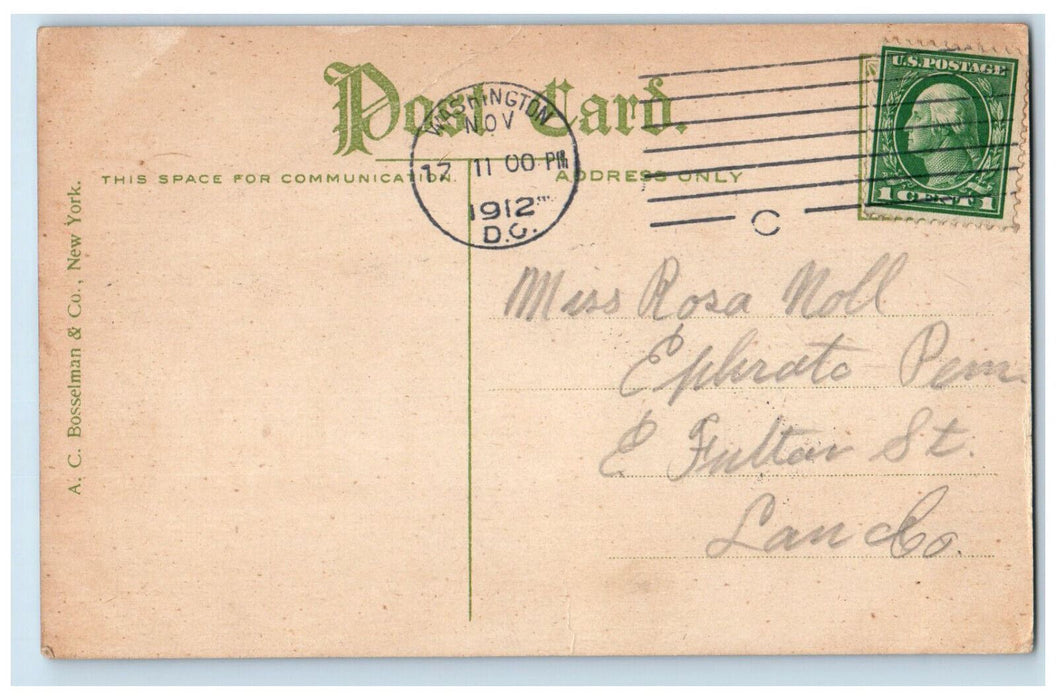 Post Card.
WASHINGTON
NOV
17 11 00 PM
1912
D.C.
C
U.S. POSTAGE
1 CENT 1
THIS SPACE FOR COMMUNICATION.
ADDRESS ONLY
A. C. Bosselman & Co., New York.
Miss Rosa Noll
Ephrata Penn.
E Fulton St.
Lan Co.